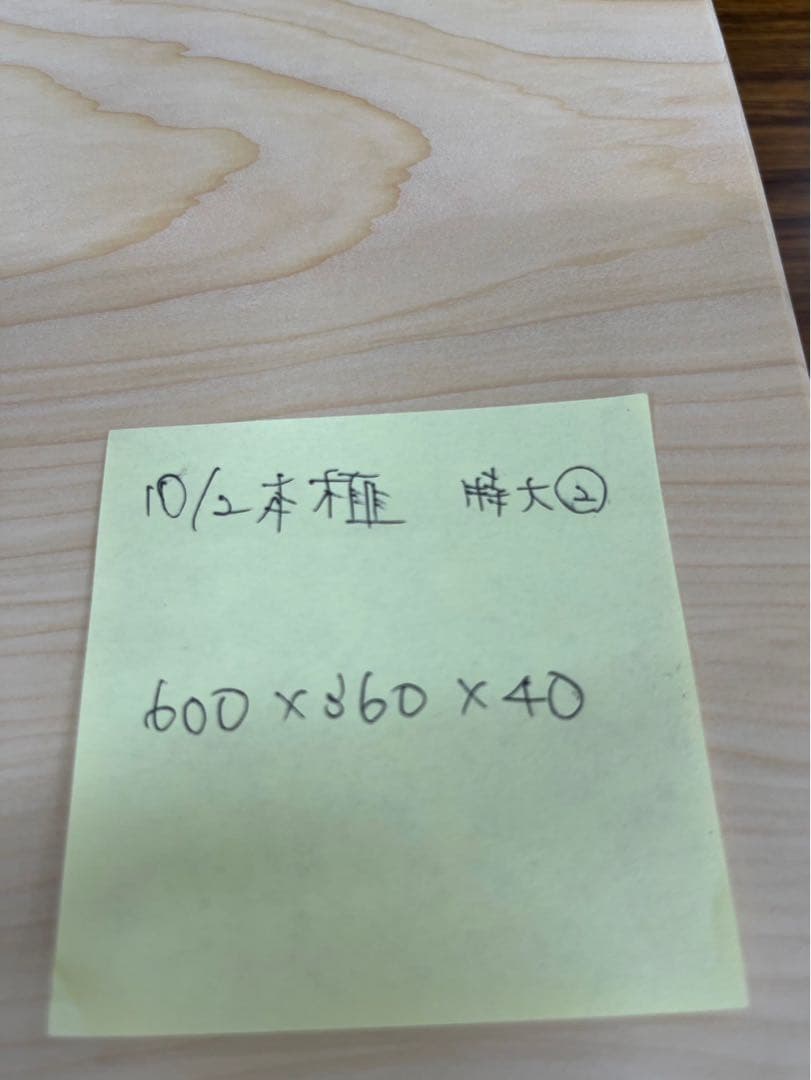 10/2本榧 特大②
600×360×40